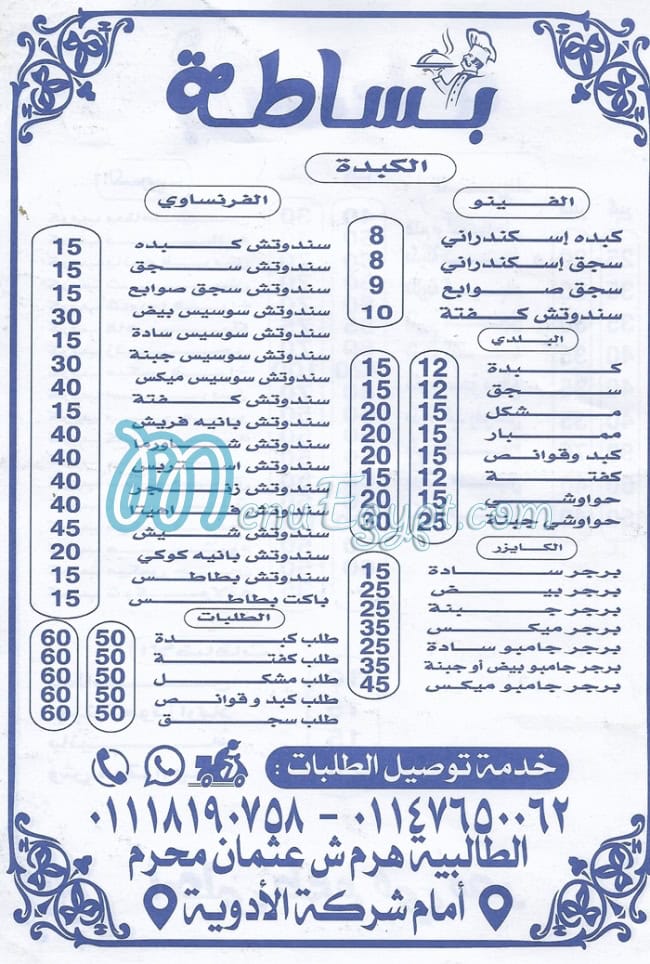 بساطة
الكبدة
الفينو
كبده إسكندراني 8
سجق إسكندراني 8
سجق صوابع 9
سندوتش كفتة 10
البلدي
كبدة 12 15
سجق 12 15
مشكل 15 20
ممبار 15 20
كبد وقوانص 15 20
كفتة 12 15
حواوشي 15 20
حواوشي جبنة 25 30
الكايزر
برجر سادة 15
برجر بيض 25
برجر جبنة 25
برجر ميكس 35
برجر جامبو سادة 25
برجر جامبو بيض أو جبنة 35
برجر جامبو ميكس 45
الفرنساوي
سندوتش كبده 15
سندوتش سجق 15
سندوتش سجق صوابع 15
سندوتش سوسيس بيض 30
سندوتش سوسيس سادة 15
سندوتش سوسيس جبنة 30
سندوتش سوسيس ميكس 40
سندوتش كفتة 15
سندوتش بانيه فريش 40
سندوتش شاورما 40
سندوتش استربس 40
سندوتش زنجر 40
سندوتش فاهيتا 40
سندوتش شيش 45
سندوتش بانيه كوكي 20
سندوتش بطاطس 15
باكت بطاطس 15
الطلبات
طلب كبدة 50 60
طلب كفتة 50 60
طلب مشكل 50 60
طلب كبد و قوانص 50 60
طلب سجق 50 60
MenuEgypt.com
خدمة توصيل الطلبات :
٠١١٤٧٦٥٠٠٦٢ - ٠١١١٨١٩٠٧٥٨
الطالبية هرم ش عثمان محرم
أمام شركة الأدوية